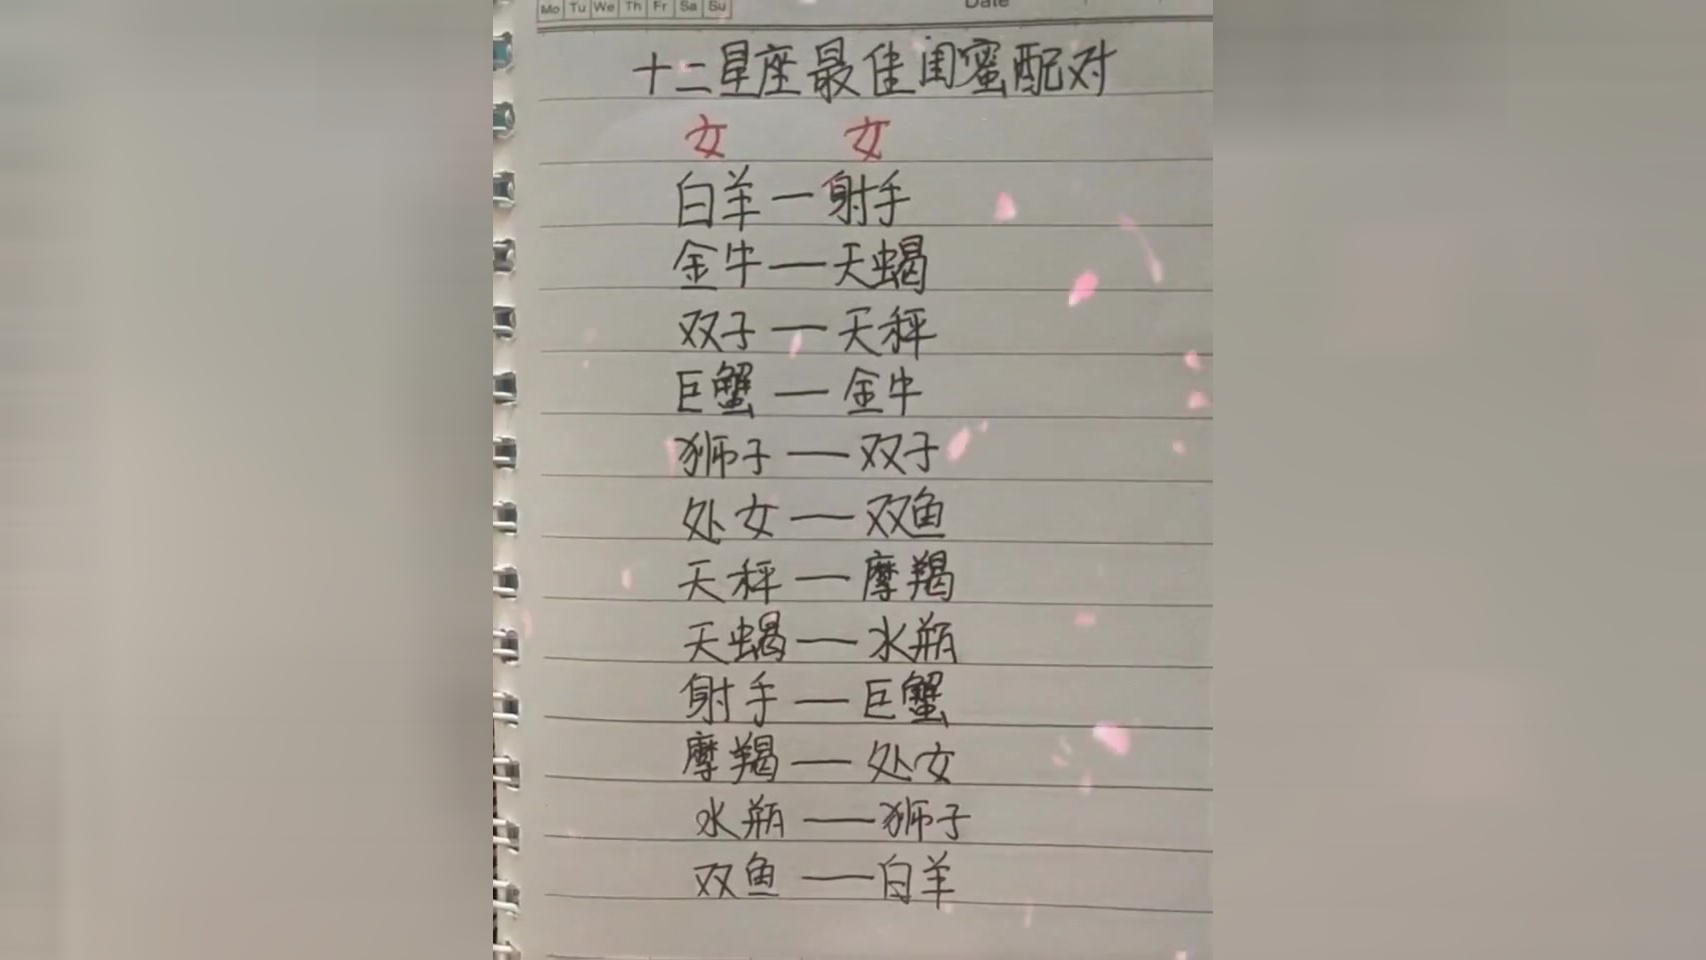 Mo Tu We Th Fr Sa Su Date
十二星座最佳闺蜜配对
女 女
白羊一射手
金牛——天蝎
双子——天秤
巨蟹——金牛
狮子——双子
处女——双鱼
天秤——摩羯
天蝎——水瓶
射手——巨蟹
摩羯——处女
水瓶——狮子
双鱼——白羊